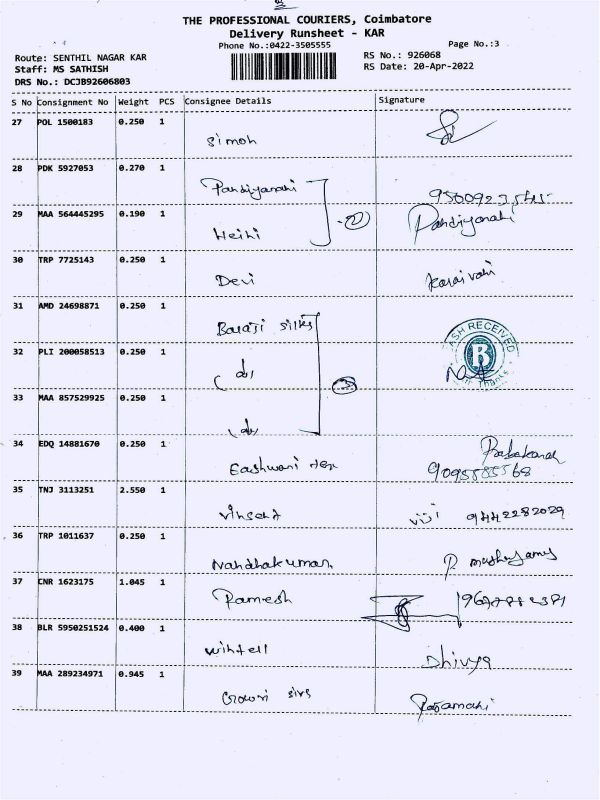 THE PROFESSIONAL COURIERS, Coimbatore
Delivery Runsheet - KAR
Phone No.:0422-3505555
Page No.:3
Route: SENTHIL NAGAR KAR
RS No.: 926068
Staff: MS SATHISH
RS Date: 20-Apr-2022
DRS No.: DCJB92606803
S No Consignment No Weight PCS Consignee Details Signature
27 POL 1500183 0.250 1
Simoh
28 PDK 5927053 0.270 1
Pandiyanahi
29 MAA 564445295 0.190 1
Pandiyanahi
30 TRP 7725143 0.250 1
Devi
31 AMD 24698871 0.250 1
Balaji silks
CASH RECEIVED
32 PLI 200058513 0.250 1
B
33 MAA 857529925 0.250 1
34 EDQ 14881670 0.250 1
Eashwani
35 TNJ 3113251 2.550 1
Vinsent 9442282029
36 TRP 1011637 0.250 1
Nandhakumar
37 CNR 1623175 1.045 1
Ramesh
38 BLR 5950251524 0.400 1
Wintell Dhivya
39 MAA 289234971 0.945 1